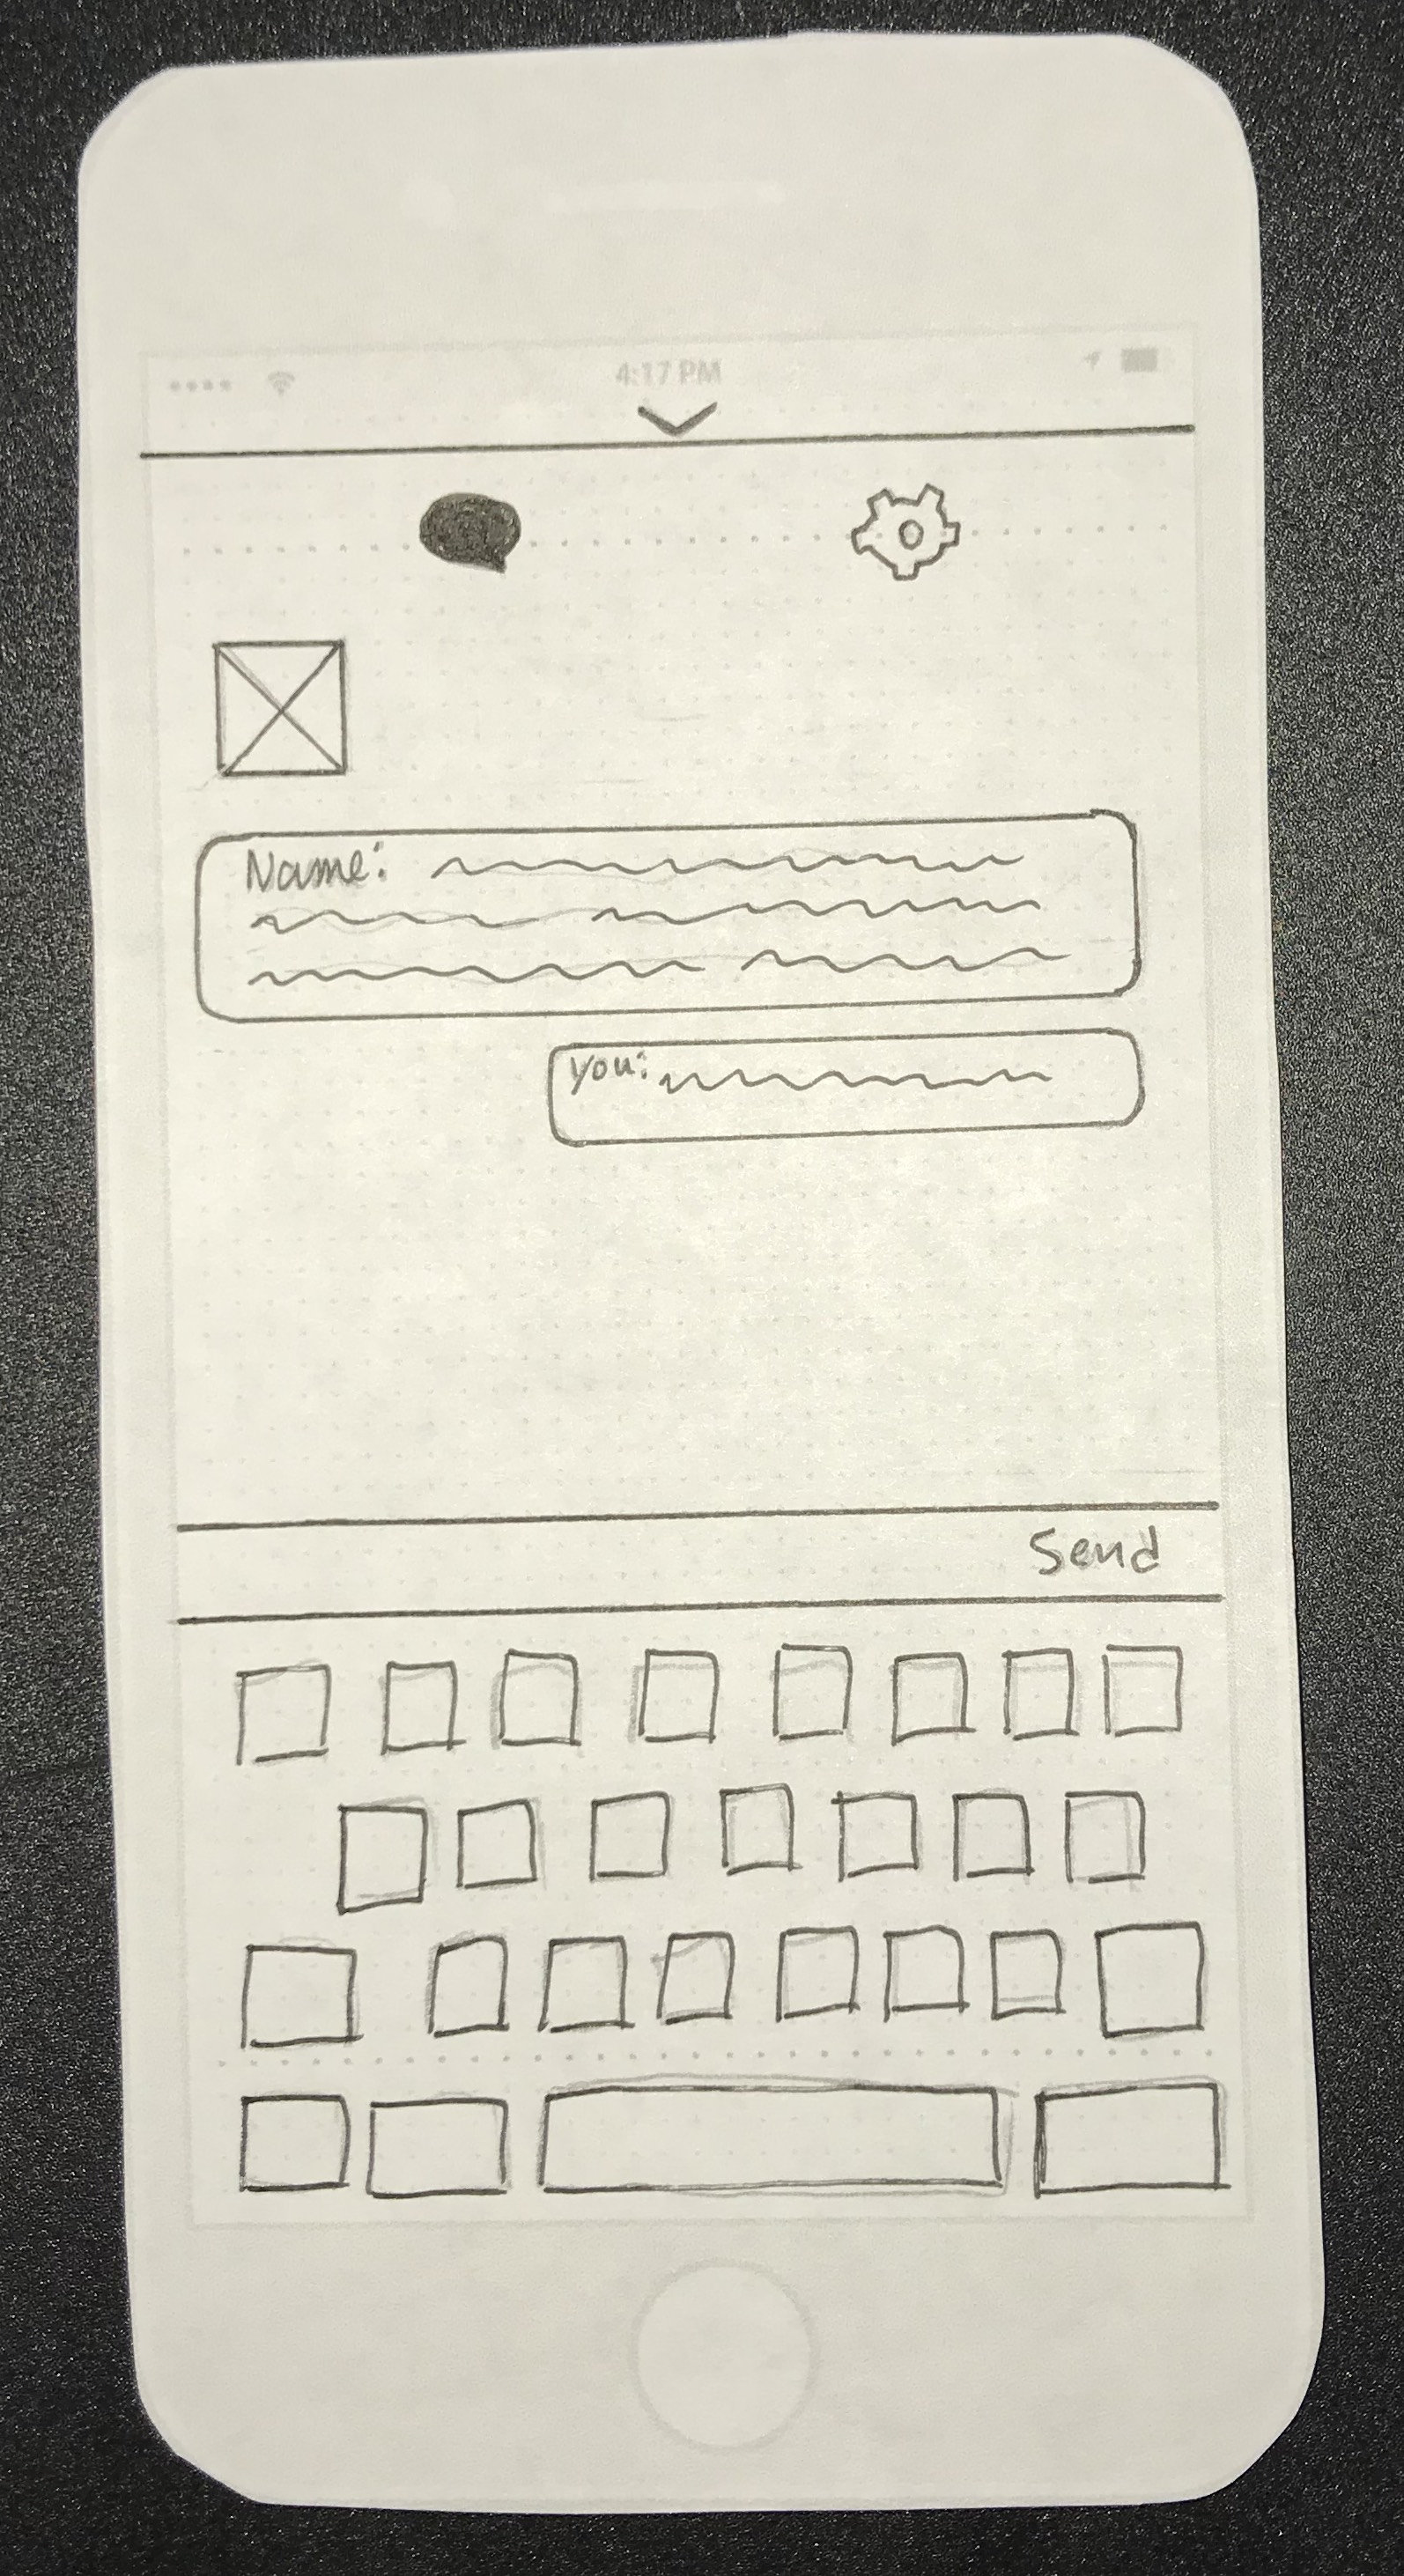 4:17 PM
Name:
you:
Send